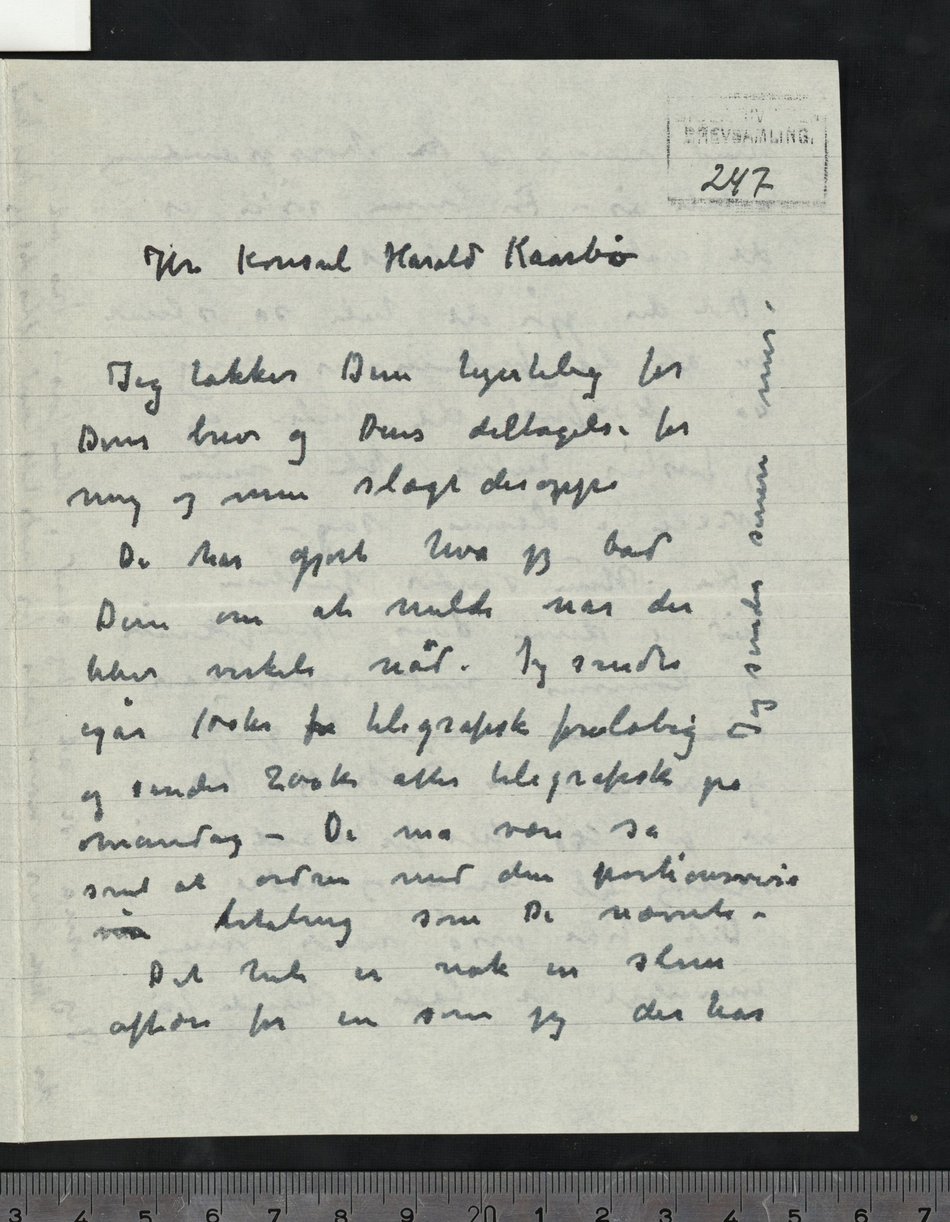 BREVSAMLING.
247
Hr Konsul Harald Kaarbø
Jeg takker Dem hjertelig for
Deres brev og Deres deltagelse for
mig og min slægt deroppe
De har gjort hva jeg bad
Dem om at melde når der
blev virkelig nöd. Jeg sendte
igår kr telegrafisk foreløbig
og sender 200 kr atter telegrafisk på
mandag – De må være så
snil at ordne med den portionsvise
betaling som De nævnte –
Det hele er nok en slem
affære for en som jeg der har
Jeg sender senere mer.